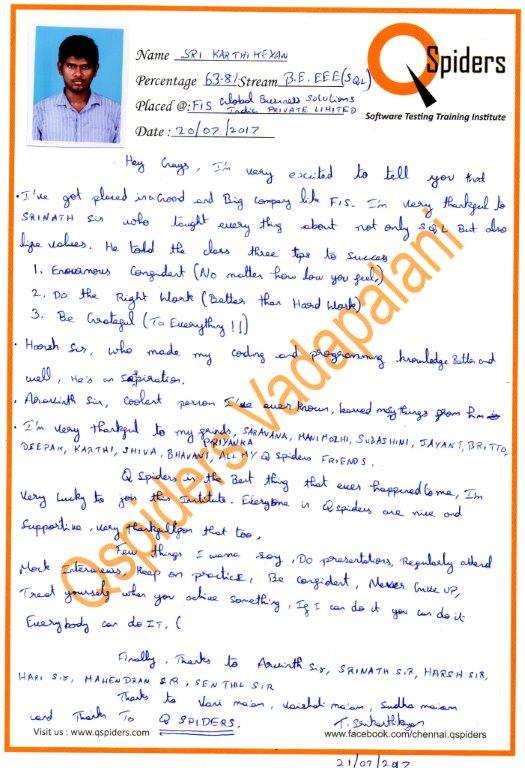 Name SRI KARTHIKEYAN
Percentage 63.8% Stream B.E. EEE (SQL)
Placed @: FIS Global Business Solutions
India PRIVATE LIMITED
Date : 20/07/2017
QSpiders
Software Testing Training Institute
Hey Guys, I'm very excited to tell you that
• I've got placed in a Good and Big Company like FIS. I'm very thankful to
SRINATH Sir who taught every thing about not only SQL But also
life values. He told the class three tips to Success
1. Enoromous Confident (No matter how low you feel,)
2. Do the Right Work (Better than Hard Work)
3. Be Grateful (To Everything !!)
• Harsh Sir, who made my coding and programming knowledge Better and
well, He's an Inspiration.
• Aravinth Sir, Coolest person I've ever known, learned many things from him
• I'm very thankful to my friends, SARAVANA, MANIMOZHI, SUBASHINI, JAYANT, BRITTO,
PRIYANKA
DEEPAK, KARTHI, SHIVA, BHAVANI, ALL MY Q Spiders FRIENDS.
Q SPiders is the Best thing that ever happened to me, I'm
Very Lucky to join this Institute. Everyone in Q spiders are nice and
Supportive, very thankful for that too,
Few things I wanna say, Do presentations, Regularly attend
Mock Interviews, Keep on practice, Be confident, Never Give UP,
Treat yourself when you achive something, If I can do it you can do it
Everybody can do IT. (
Finally, Thanks to Aravinth Sir, SRINATH SIR, HARSH SIR,
HARI Sir, MAHENDRAN SIR, SENTHIL SIR
Thanks to Vani ma'am, Vaishali ma'am, Sudha ma'am
and Thanks To Q SPIDERS.
T. Srikarthikeyan
Visit us : www.qspiders.com
www.facebook.com/chennai.qspiders
21/07/2017
Qspiders Vadapalani